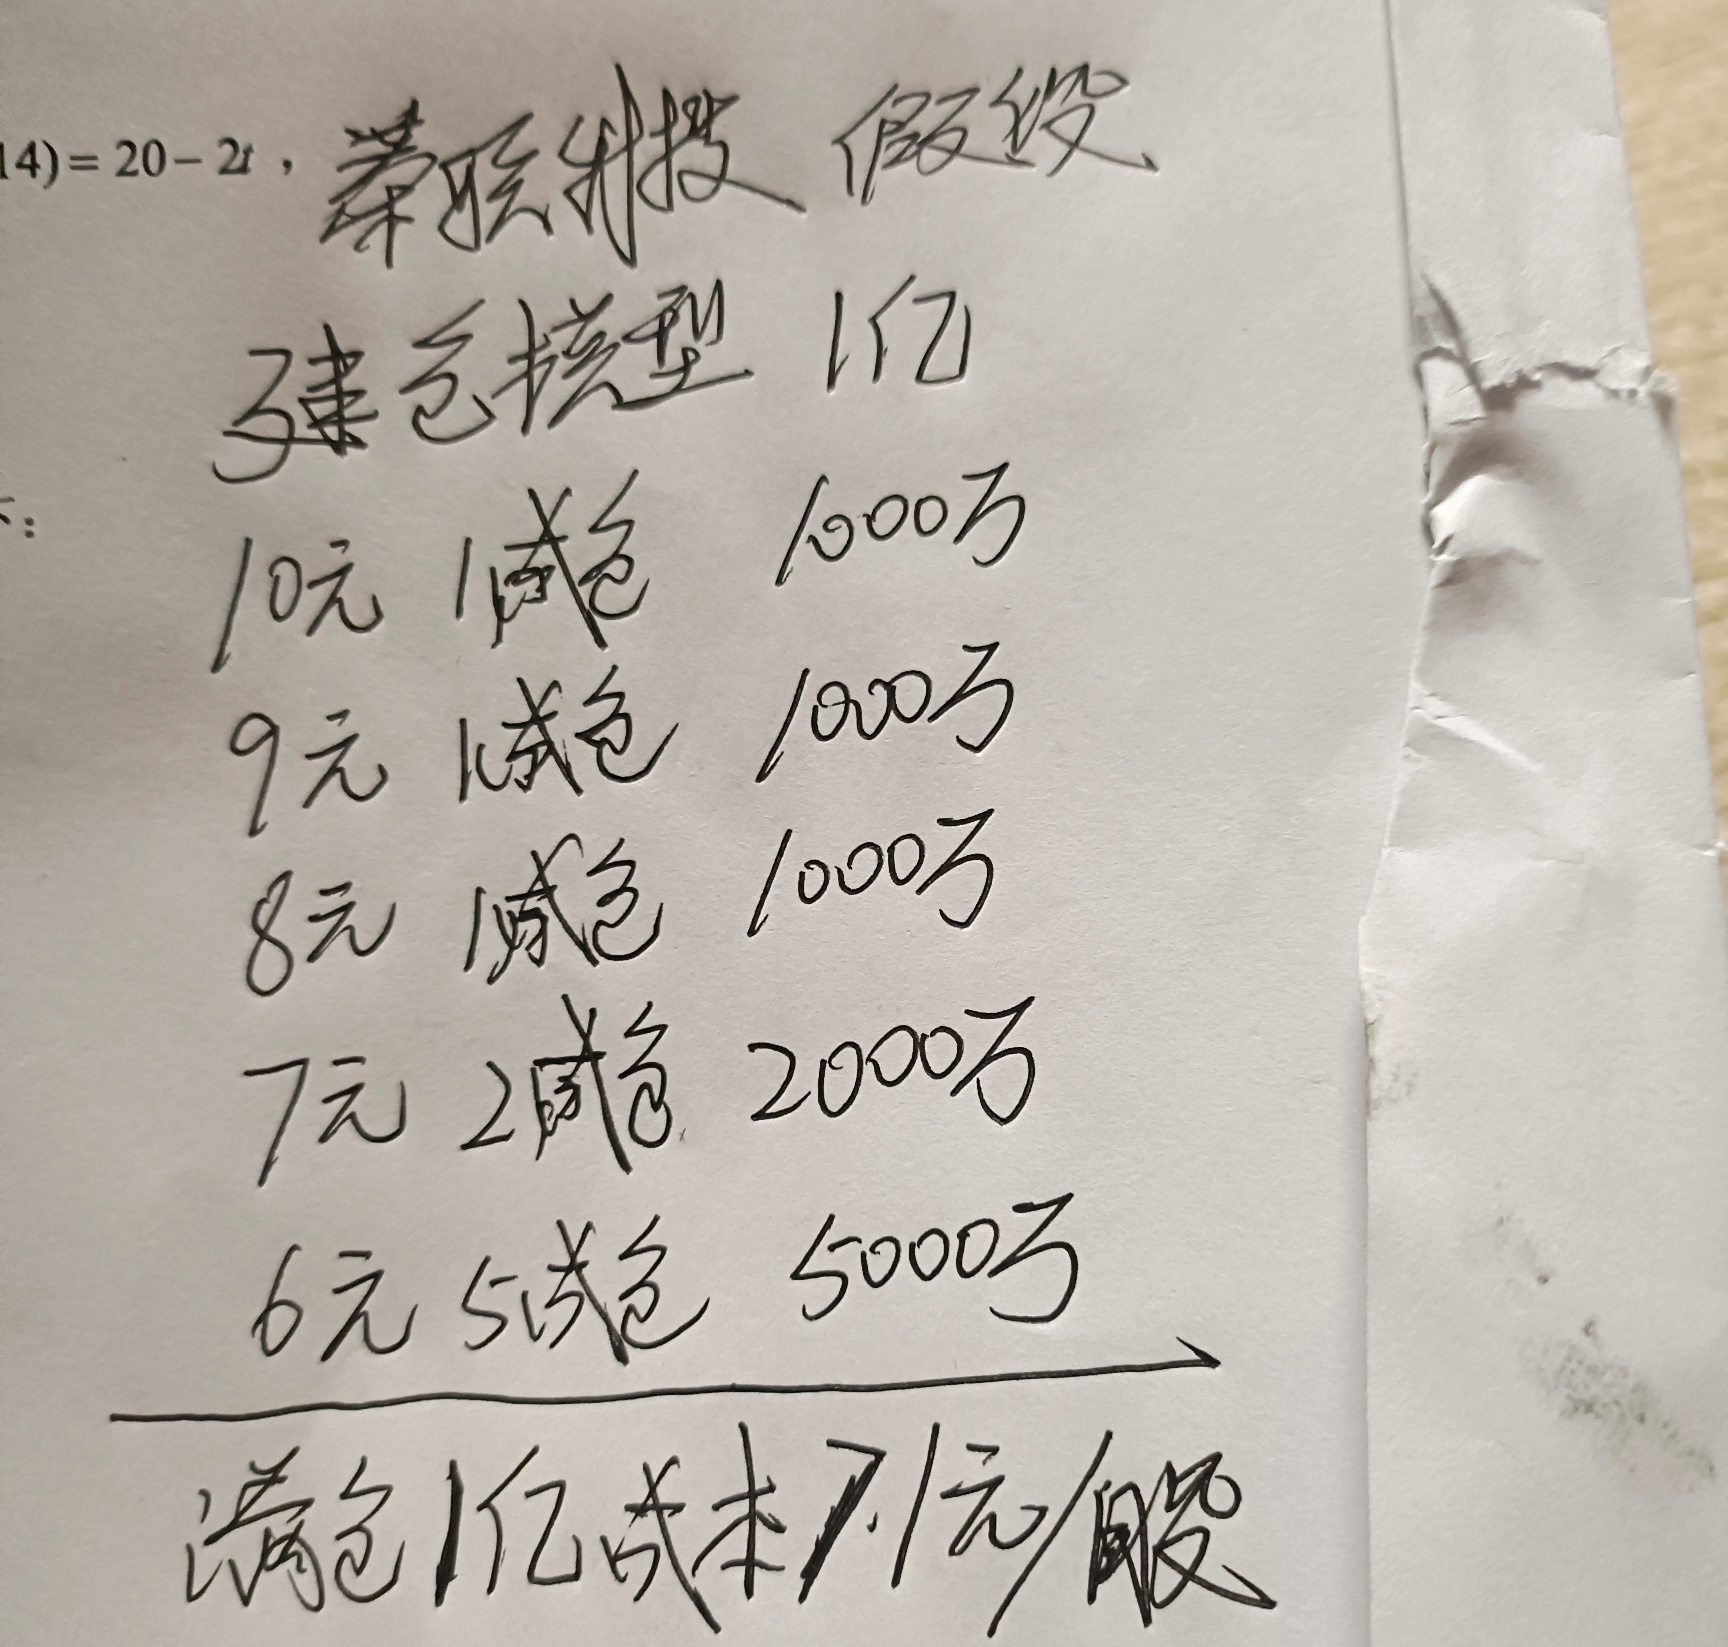 14) = 20 − 2t， 荣联科技 假设
建仓模型 1亿
10元 1减仓 1000万
：
9元 1减仓 1000万
8元 1减仓 1000万
7元 2减仓 2000万
6元 5减仓 5000万
满仓1亿成本7.1元/股